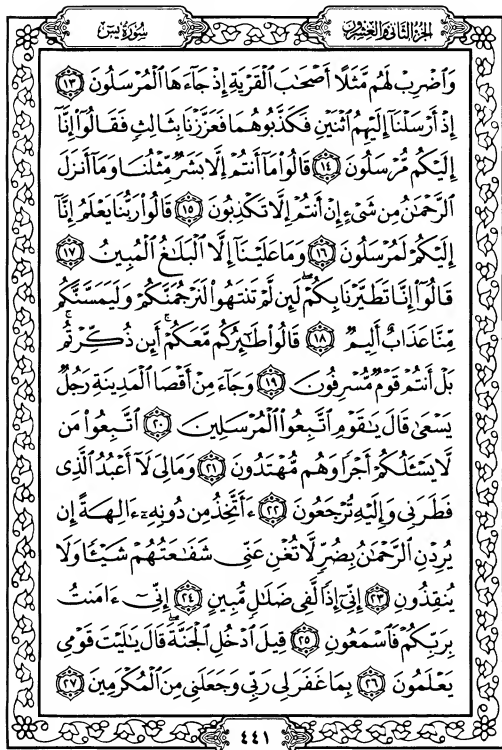 سُورَةُ يسٓ
الجُزْءُ الثَّانِي وَالعِشْرُونَ
وَٱضْرِبْ لَهُم مَّثَلًا أَصْحَٰبَ ٱلْقَرْيَةِ إِذْ جَآءَهَا ٱلْمُرْسَلُونَ ١٣
إِذْ أَرْسَلْنَآ إِلَيْهِمُ ٱثْنَيْنِ فَكَذَّبُوهُمَا فَعَزَّزْنَا بِثَالِثٍ فَقَالُوٓا۟ إِنَّآ
إِلَيْكُم مُّرْسَلُونَ ١٤ قَالُوا۟ مَآ أَنتُمْ إِلَّا بَشَرٌ مِّثْلُنَا وَمَآ أَنزَلَ
ٱلرَّحْمَٰنُ مِن شَىْءٍ إِنْ أَنتُمْ إِلَّا تَكْذِبُونَ ١٥ قَالُوا۟ رَبُّنَا يَعْلَمُ إِنَّآ
إِلَيْكُمْ لَمُرْسَلُونَ ١٦ وَمَا عَلَيْنَآ إِلَّا ٱلْبَلَٰغُ ٱلْمُبِينُ ١٧
قَالُوٓا۟ إِنَّا تَطَيَّرْنَا بِكُمْ ۖ لَئِن لَّمْ تَنتَهُوا۟ لَنَرْجُمَنَّكُمْ وَلَيَمَسَّنَّكُم
مِّنَّا عَذَابٌ أَلِيمٌ ١٨ قَالُوا۟ طَٰٓئِرُكُم مَّعَكُمْ ۚ أَئِن ذُكِّرْتُم ۚ
بَلْ أَنتُمْ قَوْمٌ مُّسْرِفُونَ ١٩ وَجَآءَ مِنْ أَقْصَا ٱلْمَدِينَةِ رَجُلٌ
يَسْعَىٰ قَالَ يَٰقَوْمِ ٱتَّبِعُوا۟ ٱلْمُرْسَلِينَ ٢٠ ٱتَّبِعُوا۟ مَن
لَّا يَسْـَٔلُكُمْ أَجْرًا وَهُم مُّهْتَدُونَ ٢١ وَمَا لِىَ لَآ أَعْبُدُ ٱلَّذِى
فَطَرَنِى وَإِلَيْهِ تُرْجَعُونَ ٢٢ ءَأَتَّخِذُ مِن دُونِهِۦٓ ءَالِهَةً إِن
يُرِدْنِ ٱلرَّحْمَٰنُ بِضُرٍّ لَّا تُغْنِ عَنِّى شَفَٰعَتُهُمْ شَيْـًٔا وَلَا
يُنقِذُونِ ٢٣ إِنِّىٓ إِذًا لَّفِى ضَلَٰلٍ مُّبِينٍ ٢٤ إِنِّىٓ ءَامَنتُ
بِرَبِّكُمْ فَٱسْمَعُونِ ٢٥ قِيلَ ٱدْخُلِ ٱلْجَنَّةَ ۖ قَالَ يَٰلَيْتَ قَوْمِى
يَعْلَمُونَ ٢٦ بِمَا غَفَرَ لِى رَبِّى وَجَعَلَنِى مِنَ ٱلْمُكْرَمِينَ ٢٧
٤٤١